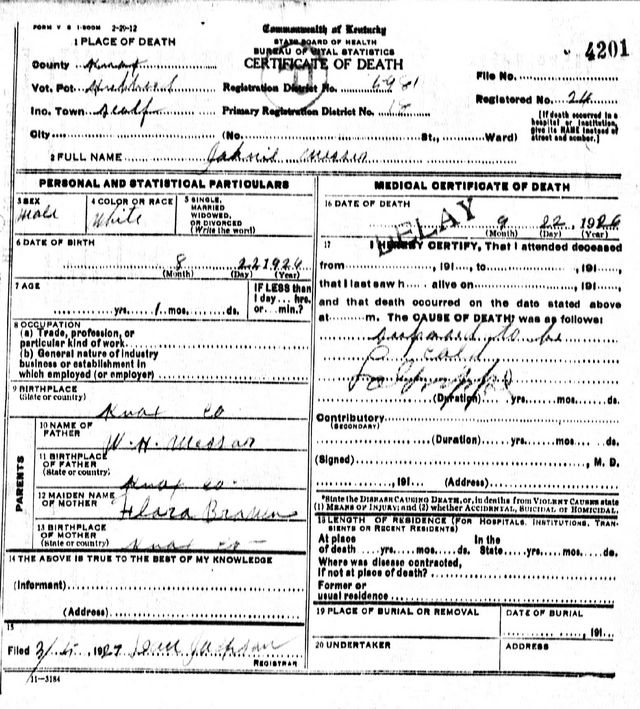 FORM V S 1-500M 2-29-12
Commonwealth of Kentucky
STATE BOARD OF HEALTH
BUREAU OF VITAL STATISTICS
CERTIFICATE OF DEATH
4201
1 PLACE OF DEATH
County Knox
Vot. Pct.
Inc. Town
City
Registration District No. 6981
Primary Registration District No.
File No.
Registered No. 24
[If death occurred in a hospital or institution, give its NAME instead of street and number.]
(No. St., Ward)
2 FULL NAME Johnie Messer
PERSONAL AND STATISTICAL PARTICULARS
3 SEX
Male
4 COLOR OR RACE
White
5 SINGLE, MARRIED WIDOWED, OR DIVORCED (Write the word)
6 DATE OF BIRTH
8 22 1926
(Month) (Day) (Year)
7 AGE
IF LESS than 1 day... hrs. or... min.?
yrs. 1 mos. ds.
8 OCCUPATION
(a) Trade, profession, or particular kind of work
(b) General nature of industry
business or establishment in
which employed (or employer)
9 BIRTHPLACE
(State or country)
Knox Co
PARENTS
10 NAME OF FATHER
W. H. Messer
11 BIRTHPLACE OF FATHER
(State or country)
Knox Co.
12 MAIDEN NAME OF MOTHER
Flora Brown
13 BIRTHPLACE OF MOTHER
(State or country)
Knox Co
14 THE ABOVE IS TRUE TO THE BEST OF MY KNOWLEDGE
(Informant)
(Address)
15
Filed 1927 Jackson
REGISTRAR
11-3184
MEDICAL CERTIFICATE OF DEATH
16 DATE OF DEATH
DELAY
9 22, 1926
(Month) (Day) (Year)
17 I HEREBY CERTIFY, That I attended deceased
from , 191 , to , 191 ,
that I last saw h alive on , 191 ,
and that death occurred on the date stated above
at m. The CAUSE OF DEATH was as follows:
supposed to be
cold
(Duration) yrs. mos. ds.
Contributory
(SECONDARY)
(Duration) yrs. mos. ds.
(Signed) , M. D.
, 191 (Address)
*State the DISEASE CAUSING DEATH, or, in deaths from VIOLENT CAUSES state
(1) MEANS OF INJURY; and (2) whether ACCIDENTAL, SUICIDAL OR HOMICIDAL.
18 LENGTH OF RESIDENCE (FOR HOSPITALS, INSTITUTIONS, TRANSIENTS OR RECENT RESIDENTS)
At place In the
of death yrs. mos. ds. State yrs. mos. ds.
Where was disease contracted,
If not at place of death?
Former or
usual residence
19 PLACE OF BURIAL OR REMOVAL
DATE OF BURIAL
, 191
20 UNDERTAKER
ADDRESS